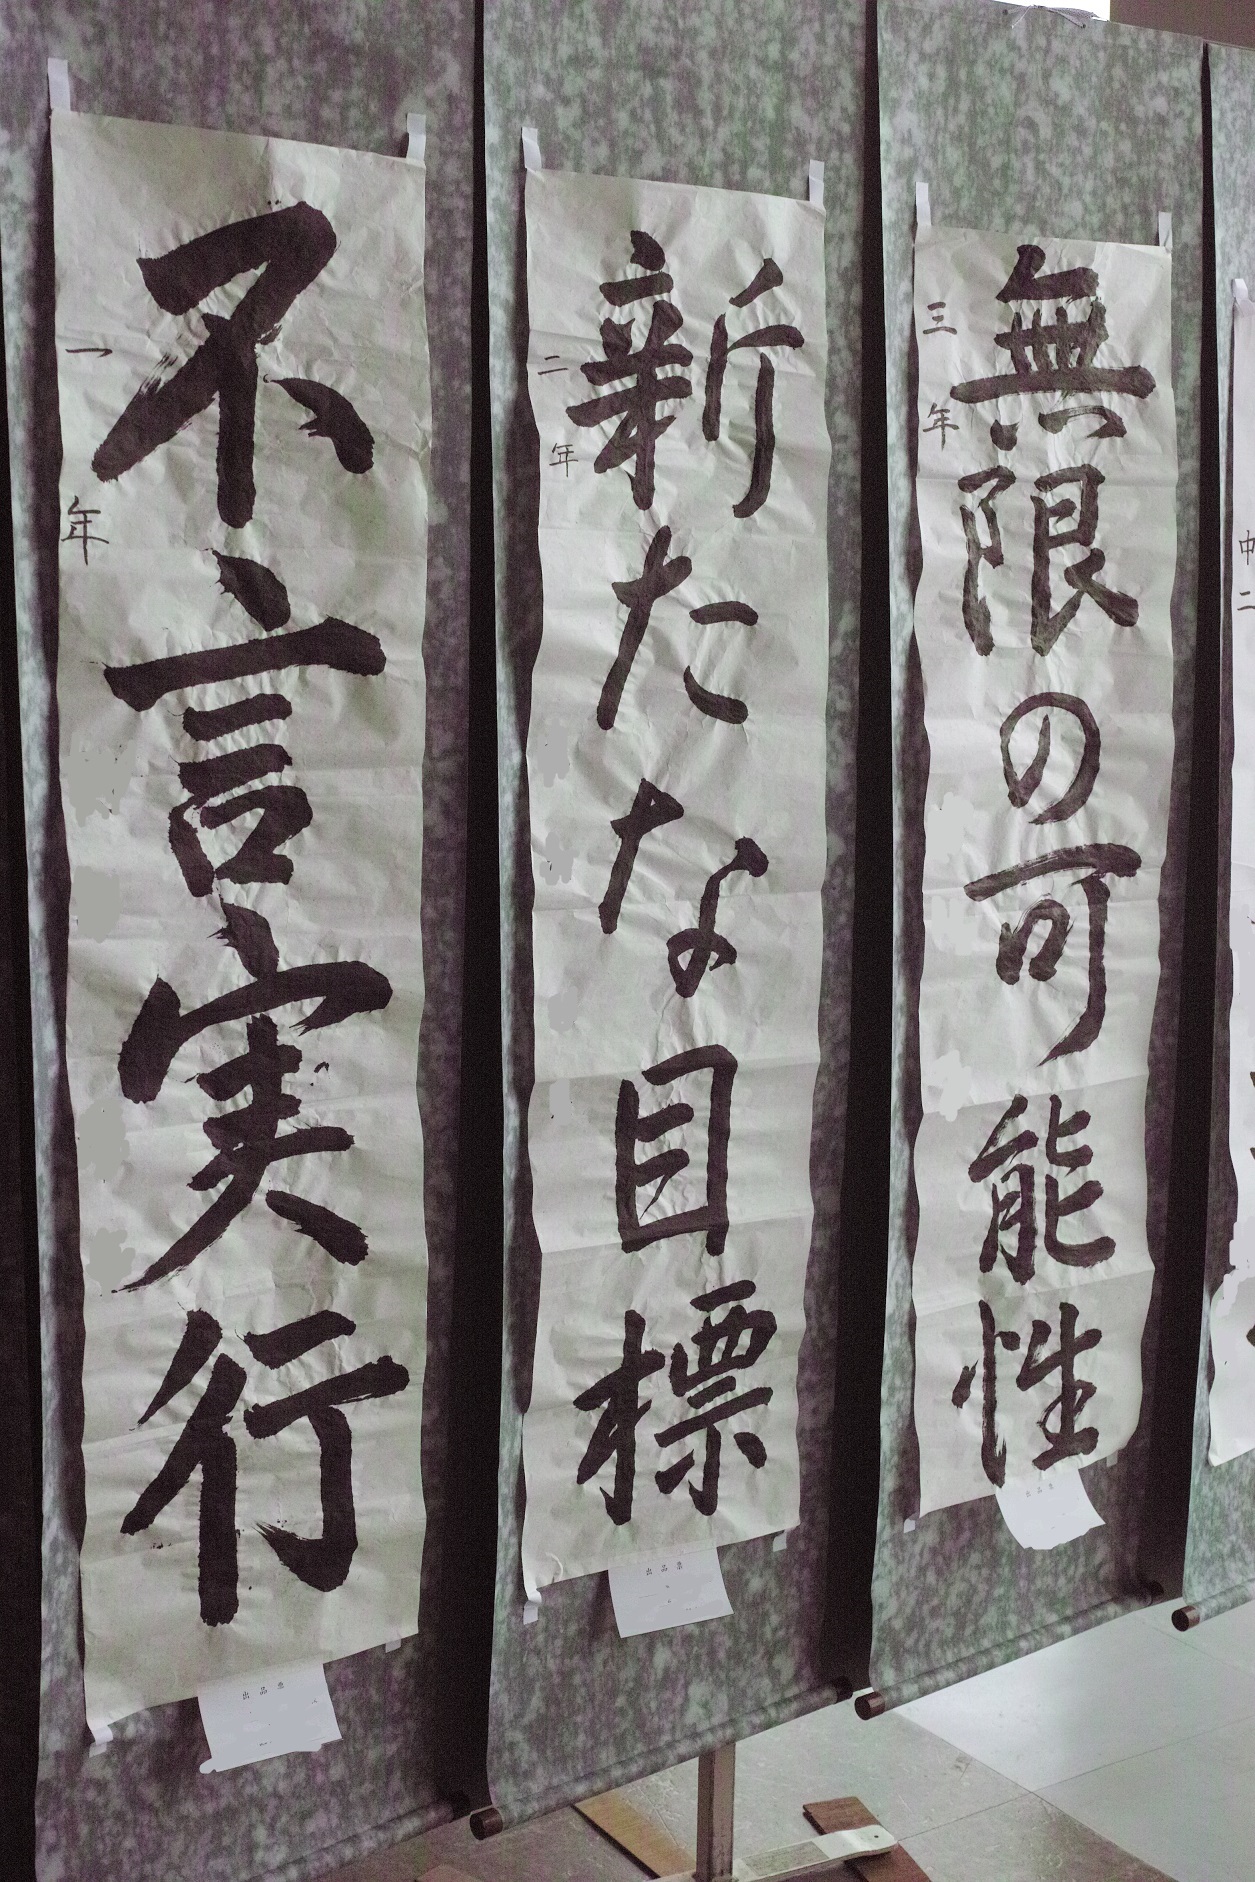 不言実行
一年
出品票
新たな目標
二年
出品票
無限の可能性
三年
出品票